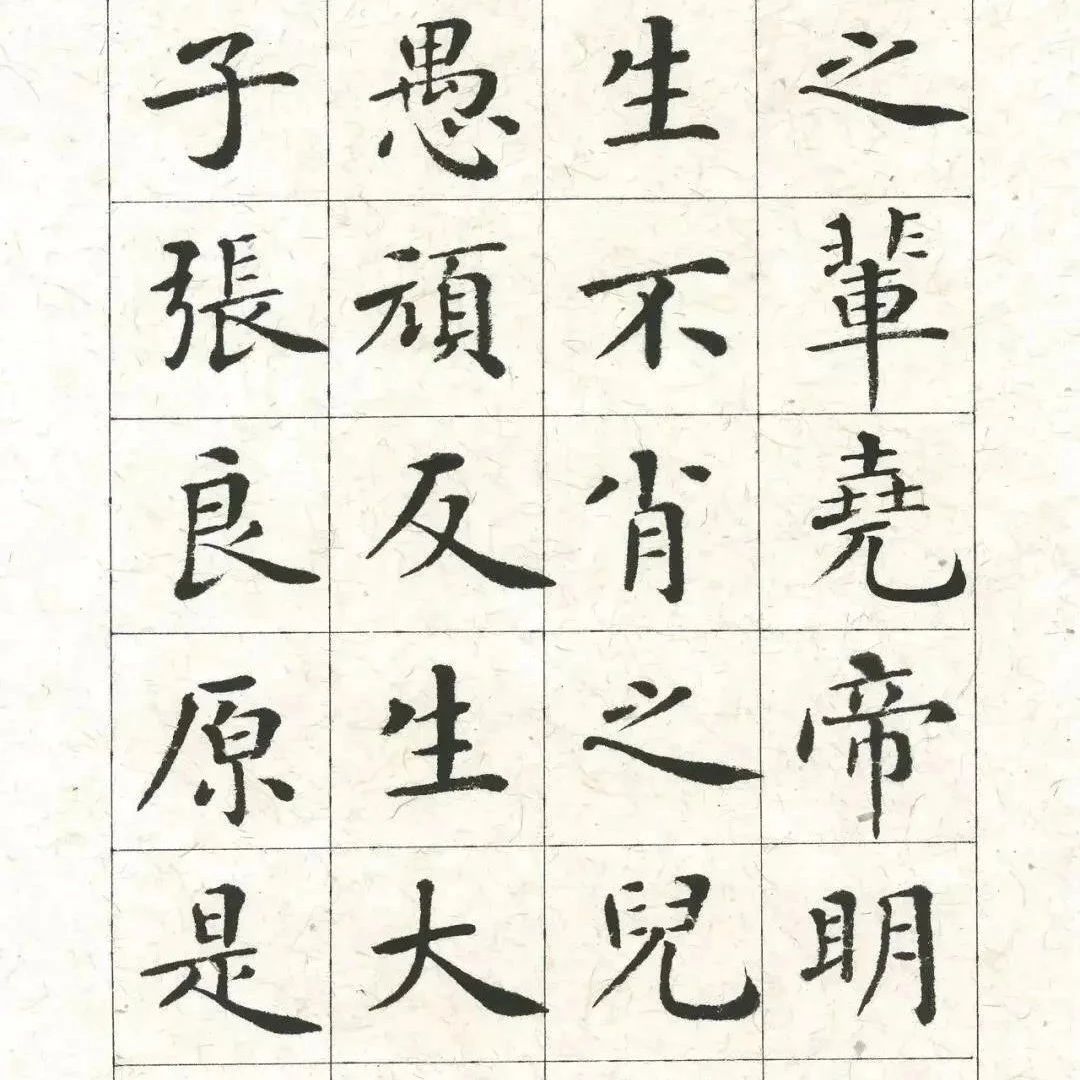 之輩堯帝明
生不肖之兒
愚頑反生大
子張良原是